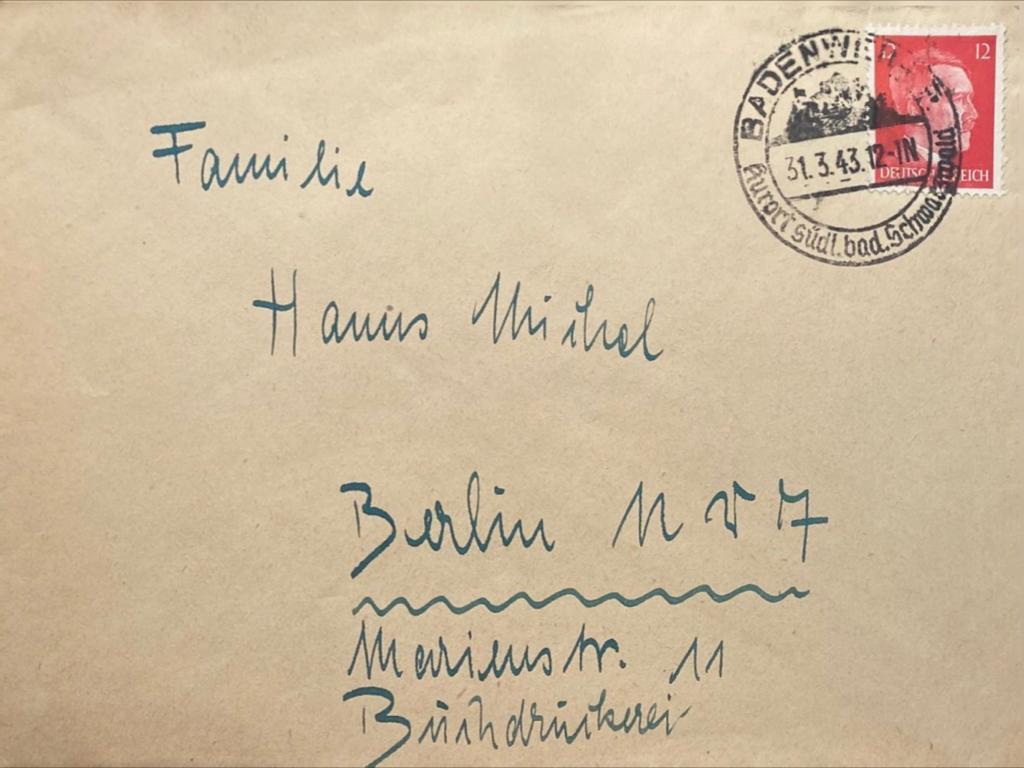 BADENWEILER
31.3.43.12-1N
Kurort südl. bad. Schwarzwald
12
DEUTSCHES REICH
Familie
Hanns Michel
Berlin NW 7
Marienstr. 11
Buchdruckerei